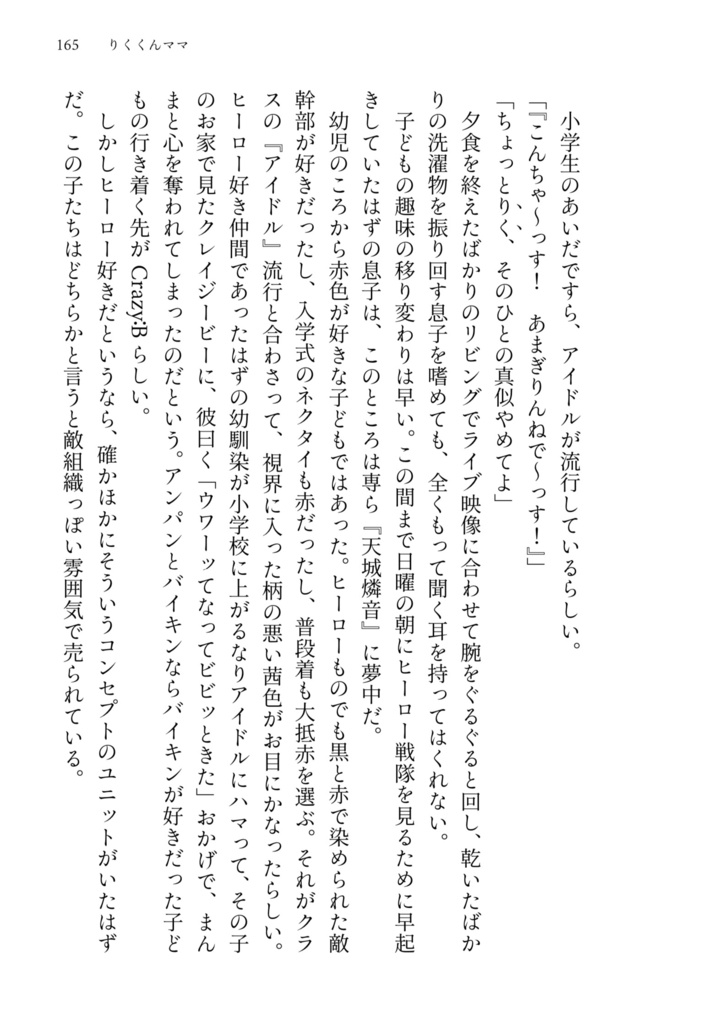 165　りくくんママ
小学生のあいだですら、アイドルが流行しているらしい。
「『こんちゃ〜っす！　あまぎりんねで〜っす！』」
「ちょっとりく、そのひとの真似やめてよ」
夕食を終えたばかりのリビングでライブ映像に合わせて腕をぐるぐると回し、乾いたばか
りの洗濯物を振り回す息子を嗜めても、全くもって聞く耳を持ってはくれない。
子どもの趣味の移り変わりは早い。この間まで日曜の朝にヒーロー戦隊を見るために早起
きしていたはずの息子は、このところは専ら『天城燐音』に夢中だ。
幼児のころから赤色が好きな子どもではあった。ヒーローものでも黒と赤で染められた敵
幹部が好きだったし、入学式のネクタイも赤だったし、普段着も大抵赤を選ぶ。それがクラ
スの『アイドル』流行と合わさって、視界に入った柄の悪い茜色がお目にかなったらしい。
ヒーロー好き仲間であったはずの幼馴染が小学校に上がるなりアイドルにハマって、その子
のお家で見たクレイジービーに、彼曰く「ウワーッてなってビビッときた」おかげで、まん
まと心を奪われてしまったのだという。アンパンとバイキンならバイキンが好きだった子ど
もの行き着く先が Crazy:B らしい。
しかしヒーロー好きだというなら、確かほかにそういうコンセプトのユニットがいたはず
だ。この子たちはどちらかと言うと敵組織っぽい雰囲気で売られている。